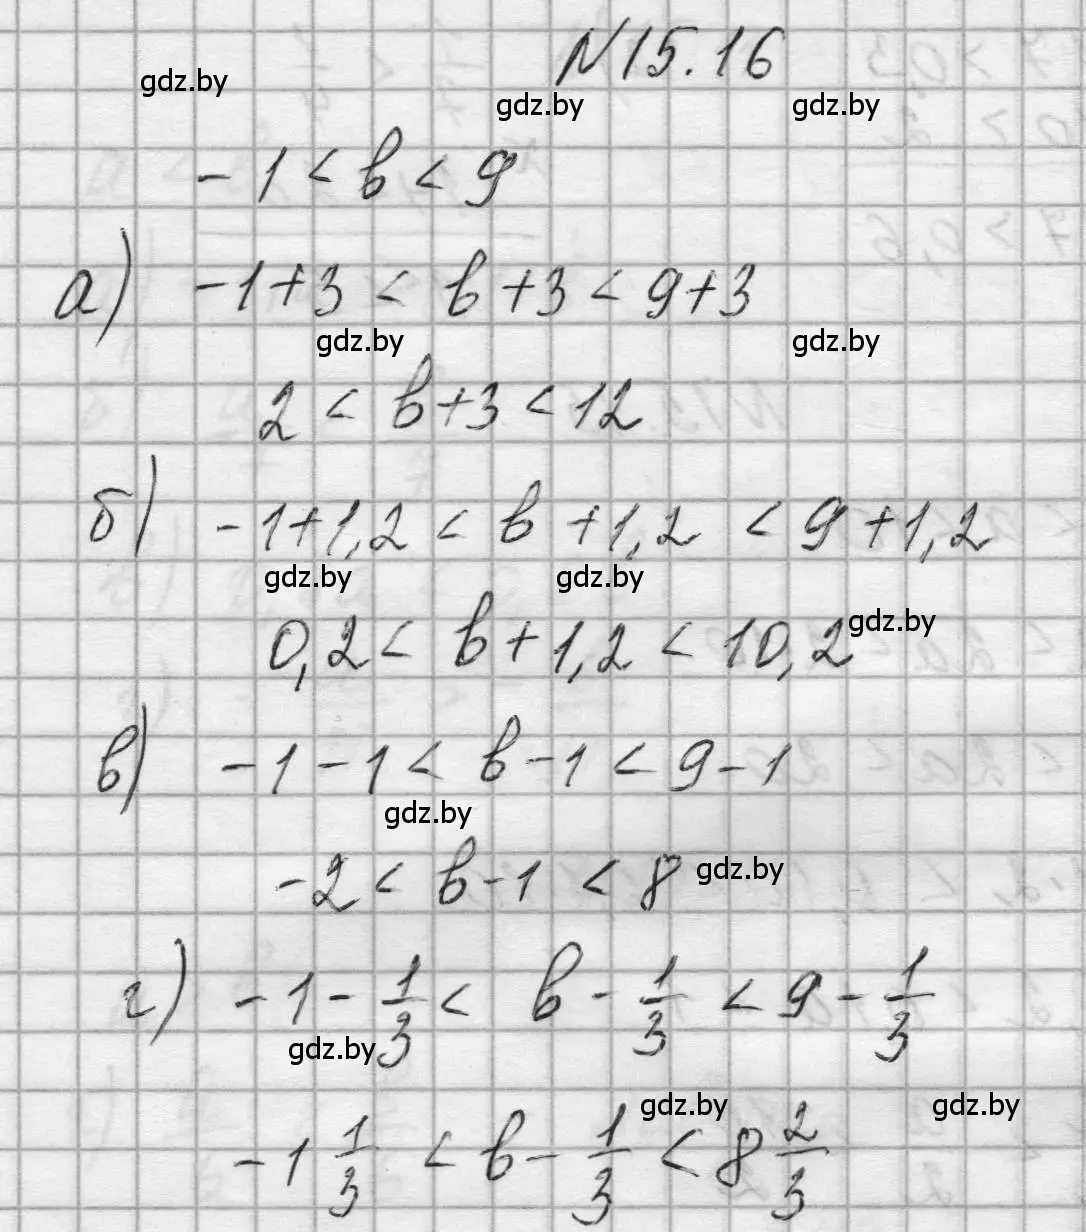 N15.16
gdz.by
gdz.by gdz.by
-1 < b < 9
а) -1+3 < b+3 < 9+3
gdz.by gdz.by
2 < b+3 < 12
б) -1+1,2 < b+1,2 < 9+1,2
gdz.by gdz.by
0,2 < b+1,2 < 10,2
gdz.by
в) -1-1 < b-1 < 9-1
gdz.by
-2 < b-1 < 8
gdz.by
г) -1-1/3 < b-1/3 < 9-1/3
gdz.by
gdz.by gdz.by
-1 1/3 < b-1/3 < 8 2/3